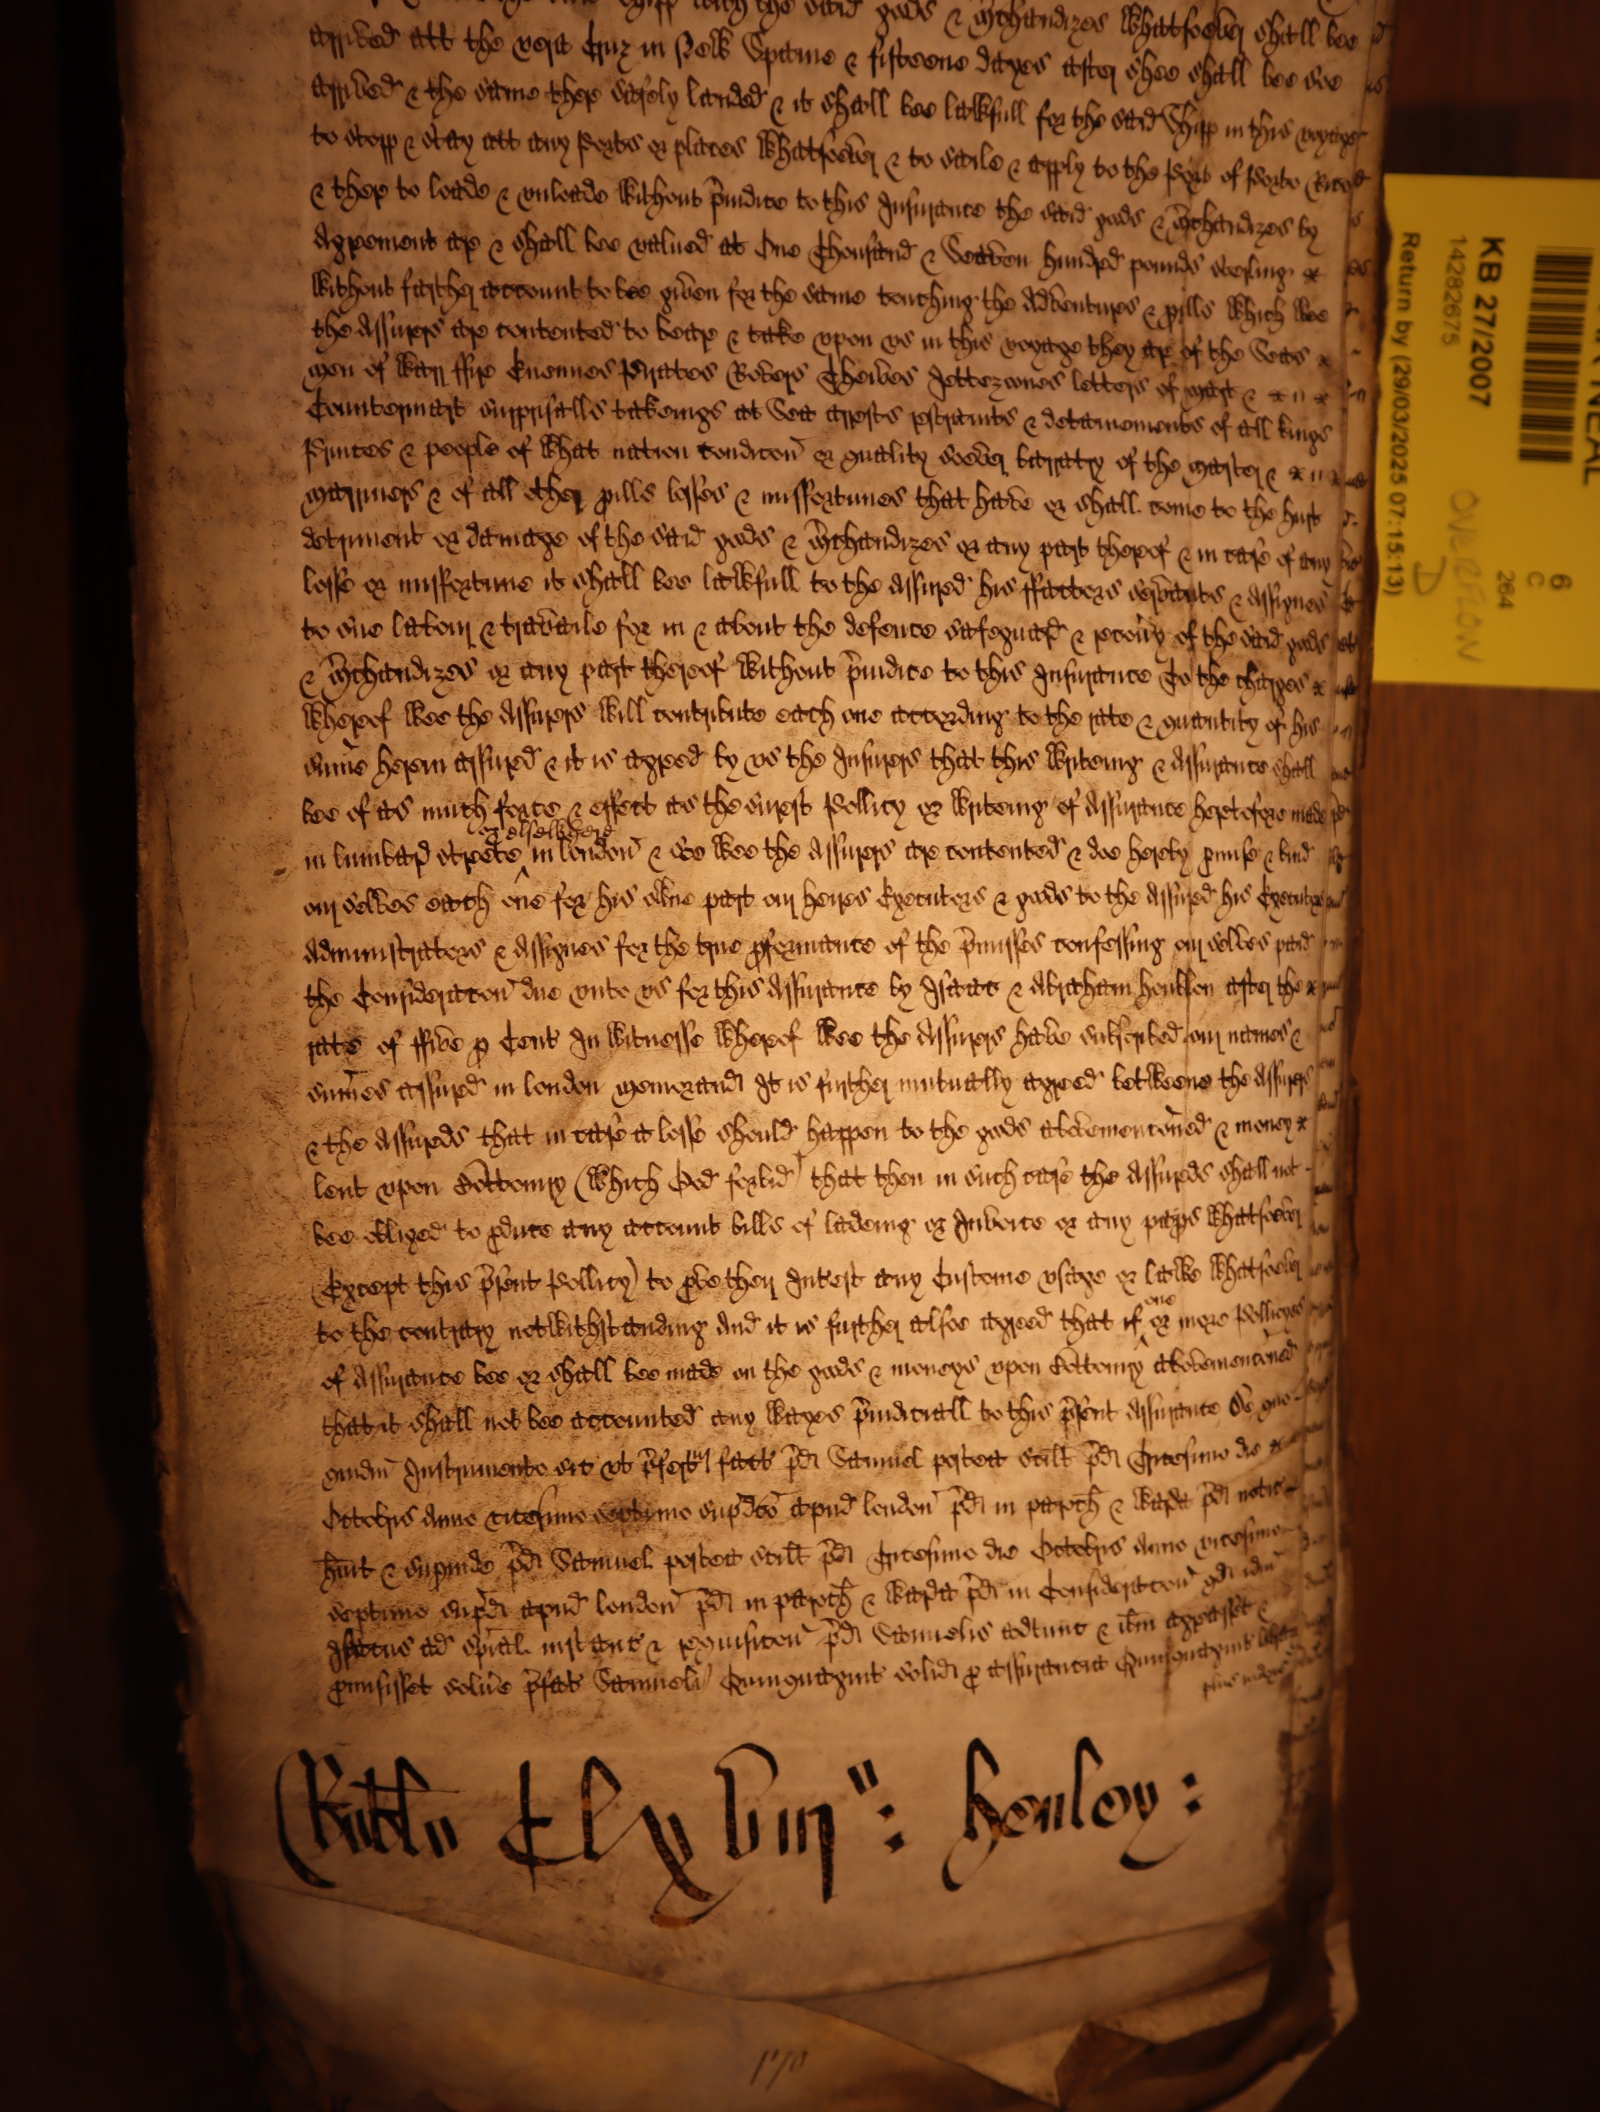 shipp with the said goods & m̄chandizes whatsoever shall bee
arrived att the vera Cruz in New Spaine & fifteene dayes after shee shall bee soe
arrived & the same ther safely landed & it shall bee lawfull for the said Shipp in this voyage
to stopp & stay att any Ports or places whatsoever & to saile & apply to the Port of Porto Rico
& ther to loade & unloade without p̄iudice to this Insurance the said goods & m̄chandizes by
Agreement are & shall bee valued at One Thousand & Seaven hundred pounds sterling
without farther account to bee given for the same touching the Adventures & perills which wee
the Assurers are contented to beare & take upon us in this voyage they are of the Seas
men of warr ffire Enemies Pirates Rovers Theives Jettezones letters of mart &
Countermart surprisalls takeings at Sea arrests restraints & detainements of all kings
Princes & people of what nation condicon or quality soever barratry of the master &
marriners & of all other perills losses & missfortunes that have or shall come to the hurt
detriment or damage of the said goods & m̄chandizes or any part thereof & in case of any
losse or missfortune it shall bee lawfull to the assured his ffactors servants & Assignes
to sue labour & travaile for in & about the defence safeguard & recovy of the said goods
& m̄chandizes or any part thereof without p̄iudice to this Insurance To the charges
whereof wee the Assurers will contribute each one according to the rate & quantity of his
sum̄e herein assured & it is agreed by us the Insurers that this writeing & Assurance shall
bee of as much force & effect as the surest Pollicy or writeing of Assurance heretofore made
or elsewhere
in lumbard streete in london & soe wee the Assurers are contented & doe hereby promise & bind
our selves each one for his owne part our heires Executors & goods to the Assured his Executors
Administrators & Assignes for the true pformance of the p̄misses confessing our selves paid
the Consideracon due unto us for this Assurance by Isaac & Abraham after the
rate of ffive p Cent In witnesse whereof wee the Assurers have subscribed our names &
sum̄es assured in london Memorand It is further mutually agreed betweene the Assurers
& the Assureds that in case a losse should happen to the goods abovemenconed & money
lent upon Bottomry (which God forbid) that then in such case the Assureds shall not
bee obliged to pduce any account bills of ladeing or Invoice or any papers whatsoever
(Except this p̄sent Pollicy) to pve their Interest any Custome usage or lawe whatsoever
one
to the contrary notwithstanding And it is further alsoe agreed that if or more Pollicyes
of Assurance bee or shall bee made on the goods & moneys upon Bottomry abovemenconed
that it shall not bee accounted any wayes p̄iudiciall to this p̄sent Assurance De quo
quidm Instrumento sic ut p̄fertur fact p̄d Samuel postea scilt p̄d Tricesimo die
Octobris Anno vicesimo septimo supdco apud london p̄d in paroch & warda p̄d notic
huit & supinde p̄d Samuel postea scilt p̄d Tricesimo die Octobris Anno vicesimo
septimo supd apud london p̄d in paroch & warda p̄d in Consideracon qd idm
Isaacus ad spial instanc & requisicon p̄d Samuelis adtunc & ibm agreasset &
promisisset solve p̄fat Samueli Quinquagint solid p assurancia Quinquagint librar
Henley:
170
KB 27/2007
14282675
Return by (29/03/2025 07:15:13)
OVERFLOW
D
264
6
C